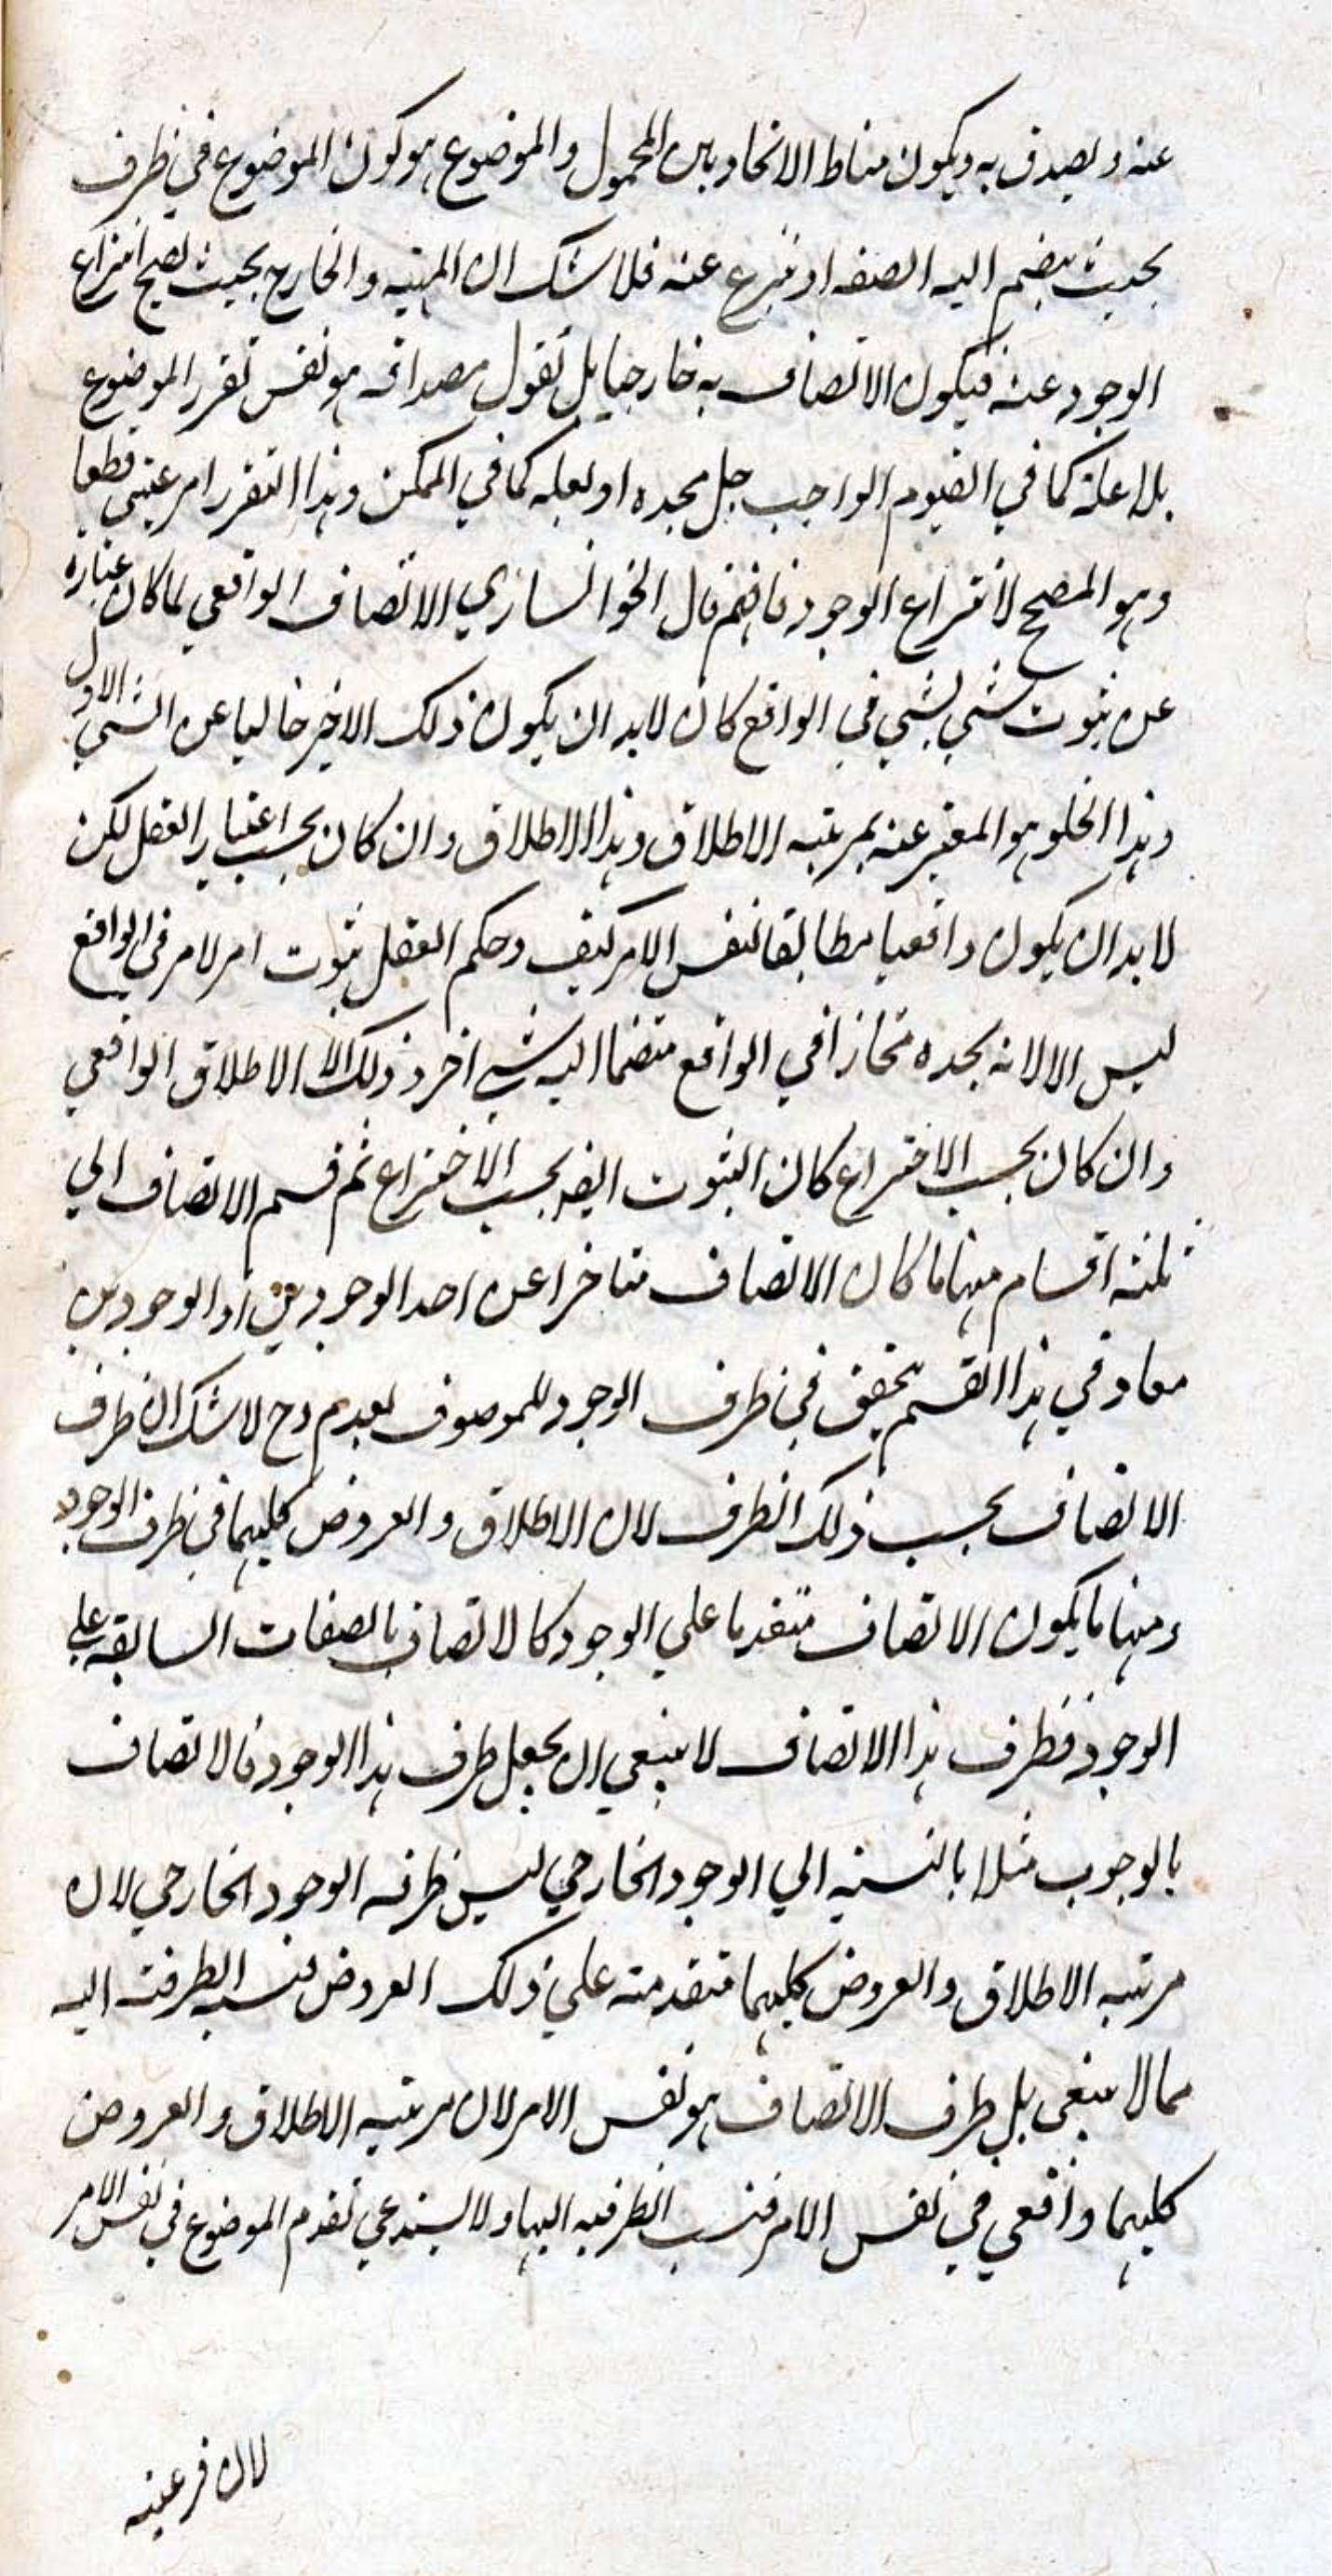 عنه ويصدق به ويكون مناط الاتحاد بين المحمول والموضوع هو كون الموضوع في ظرف
بحيث ينضم اليه الصفه او ينتزع عنه فلا شك ان المهيه و الخارج بحيث يصح انتزاع
الوجود عنه فيكون الاتصاف به خارجيا بل نقول مصداقه هو نفس تقرر الموضوع
بلا علة كما في القيوم الواجب جل مجده او بعلة كما في الممكن وهذا التقرر امر عيني قطعا
وهو المصحح لانتزاع الوجود فافهم قال الخوانساري الاتصاف الواقعي لما كان عبارة
عن ثبوت شي لشي في الواقع كان لابد ان يكون ذلك الاخير خاليا عن الشي الاول
وهذا الخلو هو المعبر عنه بمرتبه الاطلاق وهذا الاطلاق وان كان بحسب اعتبار العقل لكن
لابد ان يكون واقعيا مطابقا لنفس الامر كيف وحكم العقل بثبوت امر لامر في الواقع
ليس الا لانه يجده منحازا في الواقع منضما اليه شي اخر وذلك الاطلاق الواقعي
وان كان بحسب الاختراع كان الثبوت ايضا بحسب الاختراع ثم قسم الاتصاف الي
ثلثه اقسام منها ما كان الاتصاف متاخرا عن احد الوجودين او الوجودين
معا وفي هذا القسم يتحقق في ظرف الوجود للموصوف لعدم وح لاشك ان ظرف
الاتصاف بحسب ذلك الظرف لان الاطلاق و العروض كليهما في ظرف الوجود
ومنها ما يكون الاتصاف متقدما علي الوجود كالاتصاف بالصفات السابقه علي
الوجود فظرف هذا الاتصاف لا ينبغي ان يجعل ظرف هذا الوجود فالاتصاف
بالوجوب مثلا بالنسبه الي الوجود الخارجي ليس ظرفه الوجود الخارجي لان
مرتبه الاطلاق والعروض كليهما متقدمته علي ذلك العروض فنسبه الظرفيه اليه
مما لا ينبغي بل ظرف الاتصاف هو نفس الامر لان مرتبه الاطلاق و العروض
كليهما واقعي في نفس الامر فنسب الظرفيه اليها ولا يستدعي تقدم الموضوع في نفس الامر
لان فرعيه